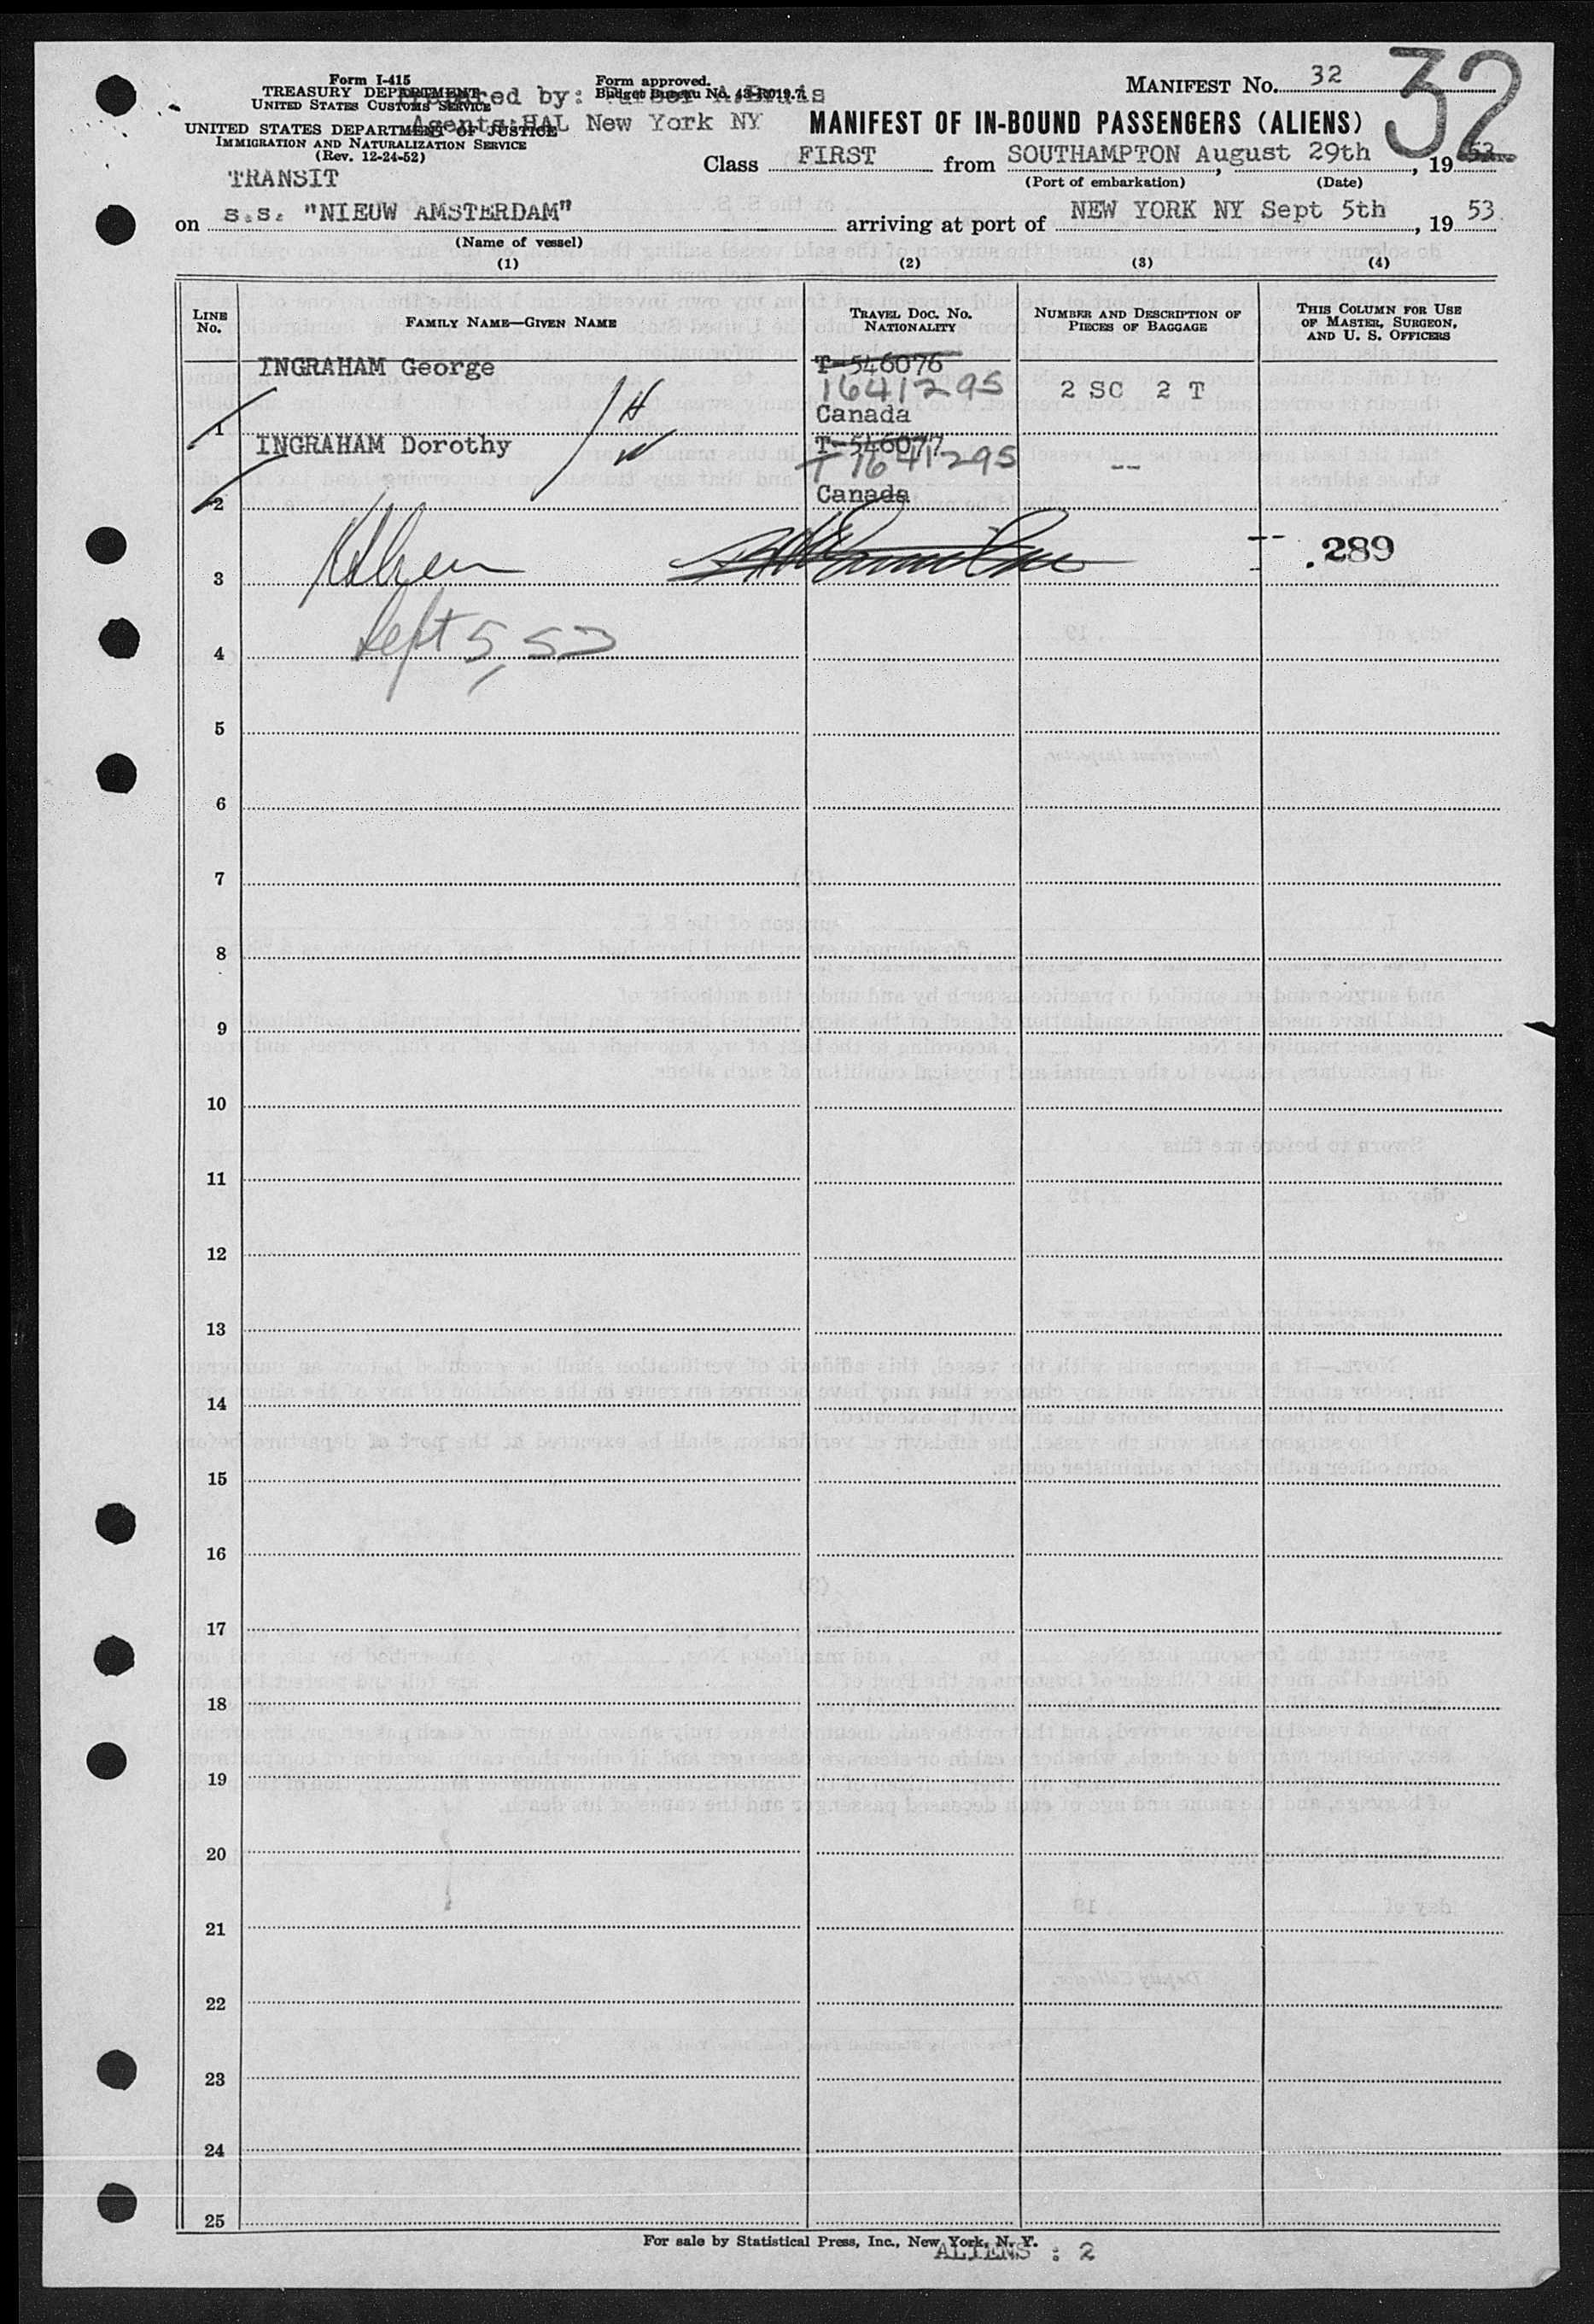 Form I-415
TREASURY DEPARTMENT
UNITED STATES CUSTOMS SERVICE
UNITED STATES DEPARTMENT OF JUSTICE
IMMIGRATION AND NATURALIZATION SERVICE
(Rev. 12-24-52)
Form approved.
Budget Bureau No. 43-R019.7.
by:
Agents:HAL New York NY
MANIFEST NO. 32
32
MANIFEST OF IN-BOUND PASSENGERS (ALIENS)
Class FIRST from SOUTHAMPTON, August 29th, 1953
(Port of embarkation) (Date)
TRANSIT
on s.s. "NIEUW AMSTERDAM" arriving at port of NEW YORK NY Sept 5th, 1953.
(Name of vessel)
(1) (2) (3) (4)
LINE NO. FAMILY NAME—GIVEN NAME TRAVEL DOC. NO. NATIONALITY NUMBER AND DESCRIPTION OF PIECES OF BAGGAGE THIS COLUMN FOR USE OF MASTER, SURGEON, AND U. S. OFFICERS
1 INGRAHAM George T-546076 1641295 Canada 2 SC 2 T
2 INGRAHAM Dorothy T-546077 T 1641295 Canada --
3 -- .289
4 Sept 5, 53
5
6
7
8
9
10
11
12
13
14
15
16
17
18
19
20
21
22
23
24
25
For sale by Statistical Press, Inc., New York, N. Y.
ALIENS : 2